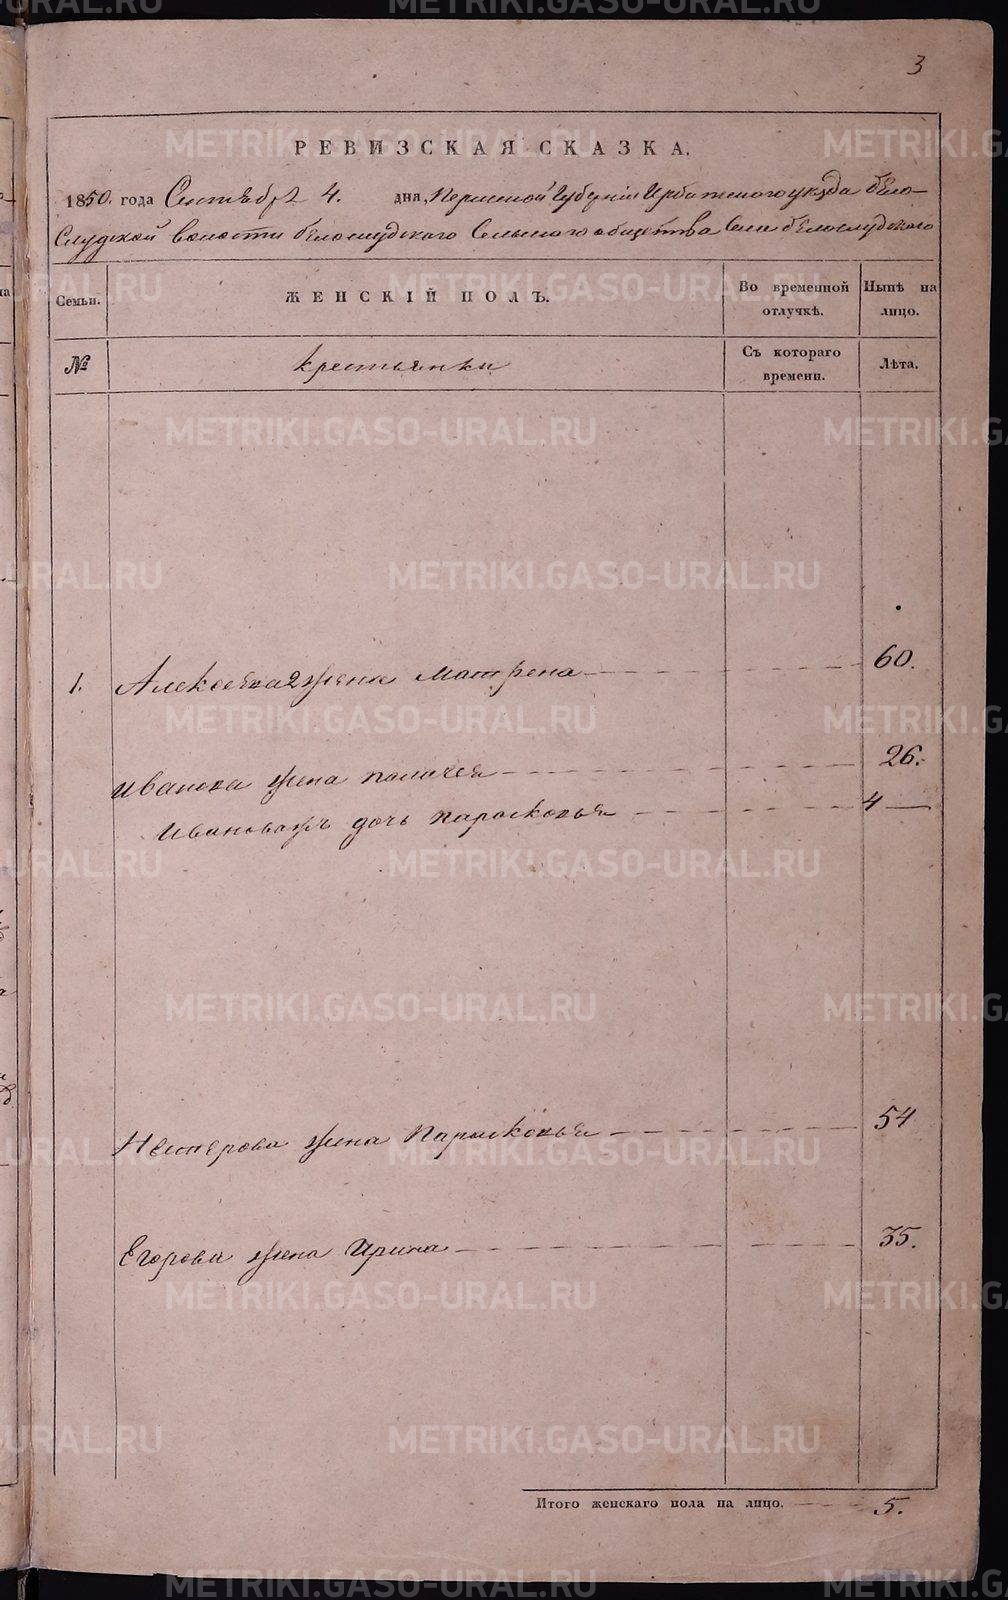 3
РЕВИЗСКАЯ СКАЗКА.
1850. года Сентября 4. дня, Пермской Губерніи Ирбитскаго уѣзда бѣло-
Слудской волости бѣлослудского Сельского общества села бѣлослудского
Семьи. ЖЕНСКІЙ ПОЛЪ. Во временной отлучкѣ. Нынѣ на лицо.
№ крестьянки Съ котораго времени. Лѣта.
1. Алексѣева 2 жена Матрена 60.
Иванова жена палагея 26.
Иванова дочь парасковья 4
Нестерова жена Парасковья 54
Егорова жена Ирина 35.
Итого женскаго пола на лицо. 5.
METRIKI.GASO-URAL.RU